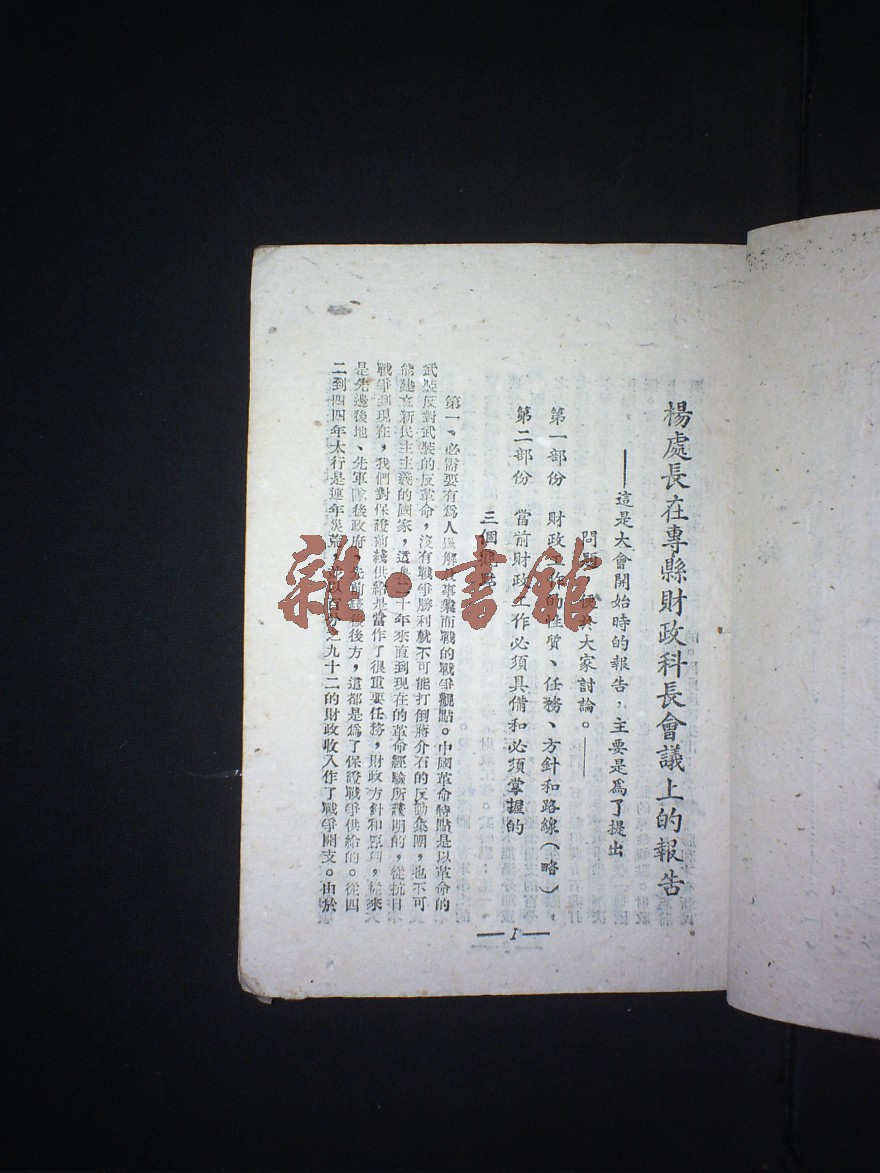 楊處長在專縣財政科長會議上的報告
——這是大會開始時的報告，主要是爲了提出
問題，大家討論。——
第一部份　財政工作的性質、任務、方針和路線（略）
第二部份　當前財政工作必須具備和必須掌握的
三個觀點
第一、必需要有爲人民解放事業而戰的戰爭觀點。中國革命特點是以革命的
武裝反對武裝的反革命，沒有戰爭勝利就不可能打倒蔣介石的反動集團，也不可
能建立新民主主義的國家，這是二十年來直到現在的革命經驗所證明的，從抗日
戰爭到現在，我們對保證前綫供給是當作了很重要任務，財政方針和原則，從來
是先邊後地、先軍隊後政府、先前綫後後方，這都是爲了保證戰爭供給的。從四
二到四四年太行是連年災荒，以百分之九十二的財政收入作了戰爭開支。由於
— 1 —
雜·書館